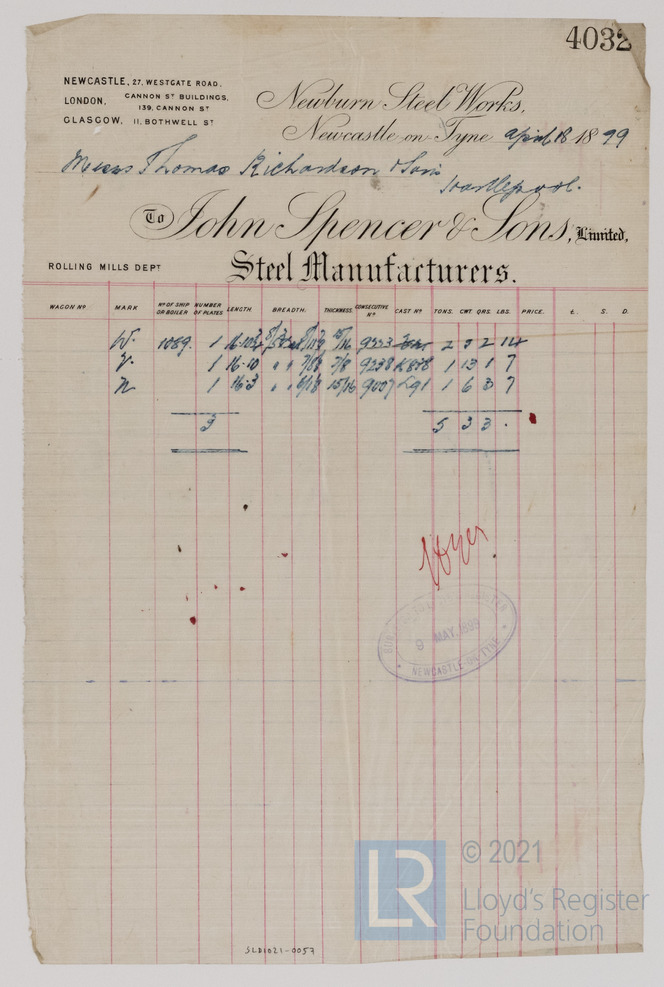 4032
NEWCASTLE, 27, WESTGATE ROAD,
LONDON, CANNON ST BUILDINGS,
139, CANNON ST
GLASGOW, 11, BOTHWELL ST
Newburn Steel Works,
Newcastle on Tyne april 18 1899
Messrs Thomas Richardson & Sons
Hartlepool.
To John Spencer & Sons, Limited,
ROLLING MILLS DEPT
Steel Manufacturers.
WAGON No MARK No OF SHIP OR BOILER NUMBER OF PLATES LENGTH. BREADTH. THICKNESS. CONSECUTIVE No CAST No TONS. CWT. QRS. LBS. PRICE. £. S. D.
W. 1089. 1 15/16 9223 2 3 2 14
1 16.10 7/8 9238 1 13 1 7
1 16.3 15/16 9007 1 6 3 7
3 5 3 3 .
9 MAY. 1899
NEWCASTLE-ON-TYNE
SLD1021-0057
LR
© 2021
Lloyd's Register
Foundation